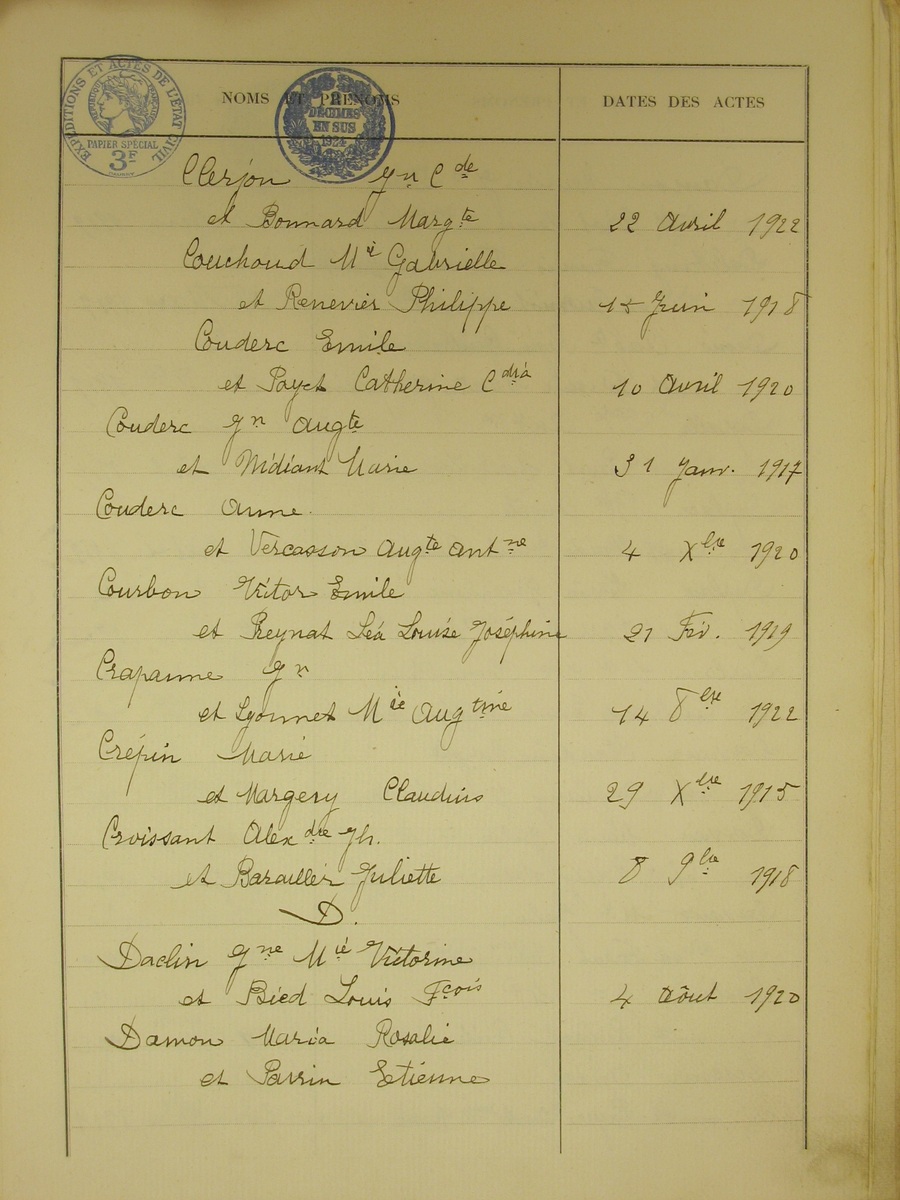 EXPÉDITIONS ET ACTES DE L'ÉTAT CIVIL
RÉPUBLIQUE FRANÇAISE
PAPIER SPÉCIAL
3F
2
DÉCIMES
EN SUS
1924
NOMS ET PRÉNOMS DATES DES ACTES
Clerjon Jn Cde
et Bonnard Margte 22 Avril 1922
Couchoud Mie Gabrielle
et Renevier Philippe 15 Juin 1918
Couderc Emile
et Payet Catherine Cdia 10 Avril 1920
Couderc Jn Augte
et Midiant Marie 31 Janv. 1917
Couderc Anne
et Vercasson Augte Antne 4 Xbre 1920
Courbon Victor Emile
et Preynat Léa Louise Joséphine 21 Fév. 1919
Crapanne Jn
et Lyonnet Mie Augtine 14 8bre 1922
Crépin Marie
et Margery Claudius 29 Xbre 1915
Croissant Alexdre Jh.
et Barailler Juliette 8 9bre 1918
D.
Daclin Jne Mie Victorine
et Bied Louis Fçois 4 Août 1920
Damon Maria Rosalie
et Parrin Etienne